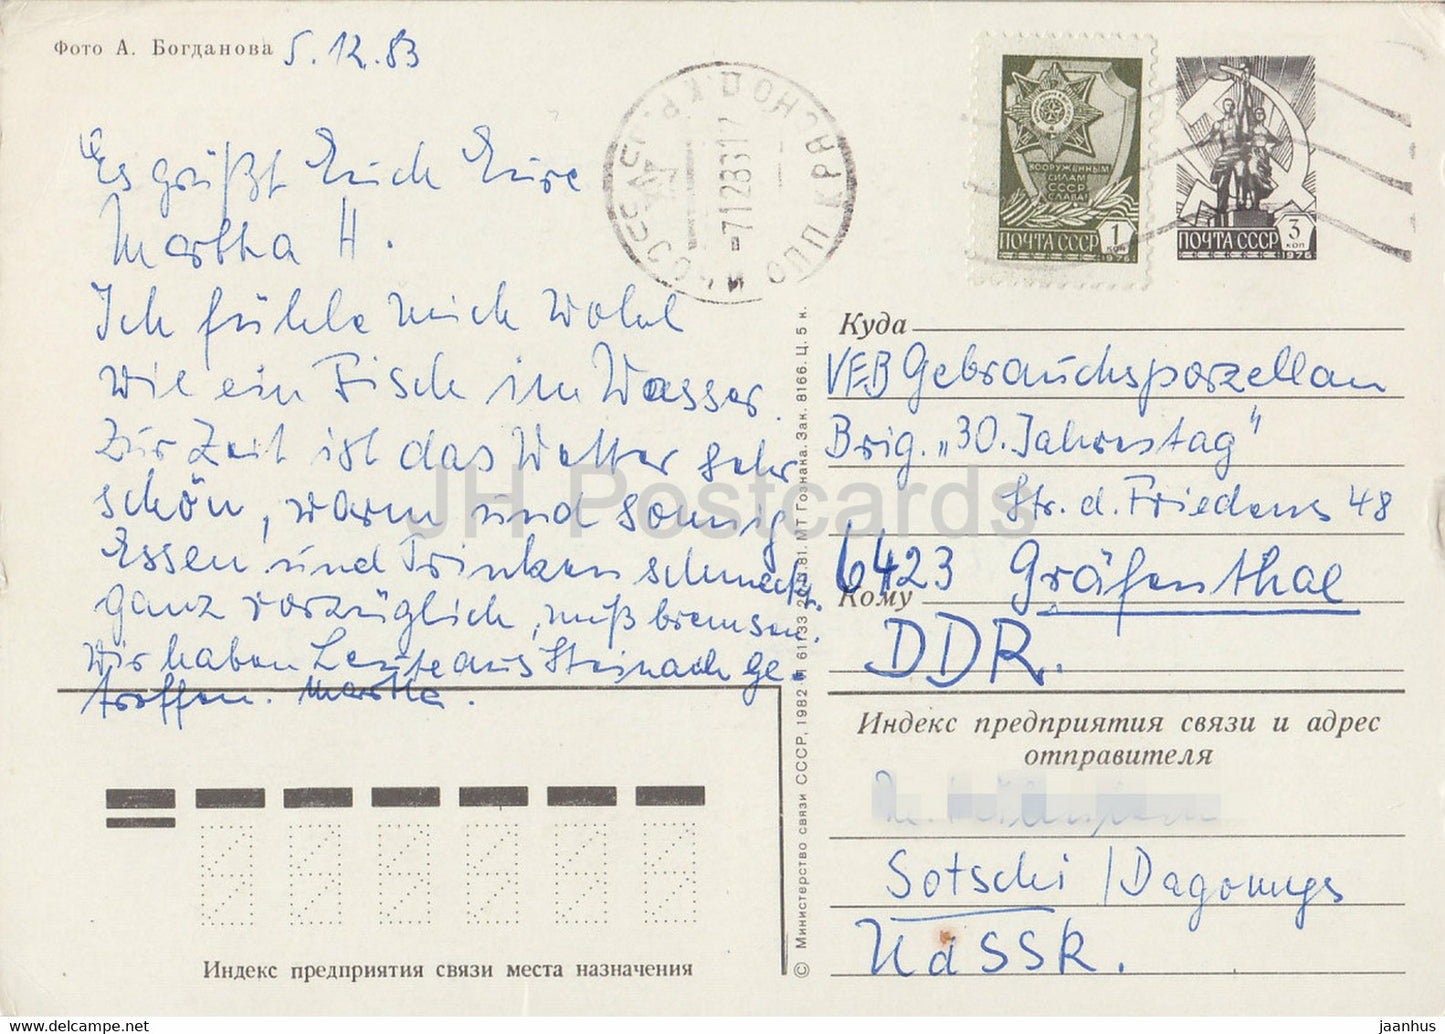 Фото А. Богданова 5.12.83
Es grüßt Euch Eure
Martha H.
Ich fühle mich wohl
wie ein Fisch im Wasser.
Zur Zeit ist das Wetter sehr
schön, warm und sonnig
Essen und Trinken schmeckt
ganz vorzüglich, muß bremsen.
Wir haben Leute aus Steinach ge-
troffen. Martha.
Индекс предприятия связи места назначения
© Министерство связи СССР, 1982 61733 81. МТ Гознака. Зак. 8166. Ц. 5 к.
СОЧИ СПП КРАСНОД.КР.
-7128317
ВООРУЖЕННЫМ
СИЛАМ
СССР
СЛАВА!
ПОЧТА СССР 1 коп
1976
ПОЧТА СССР 3 коп
1976
Куда
VEB Gebrauchsporzellan
Brig. „30. Jahrestag"
Str. d. Friedens 48
6423 Gräfenthal
Кому
DDR.
Индекс предприятия связи и адрес
отправителя
Sotschi / Dagomys
UdSSR.
JH Postcards
delcampe.net
jaanhus